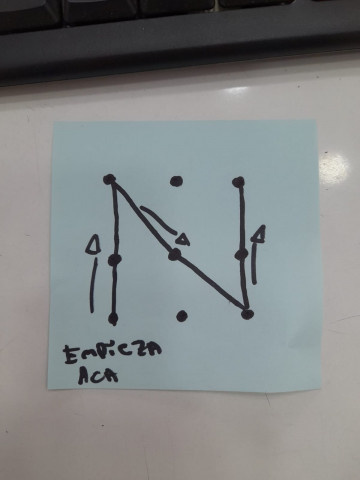 EMPIEZA
ACA